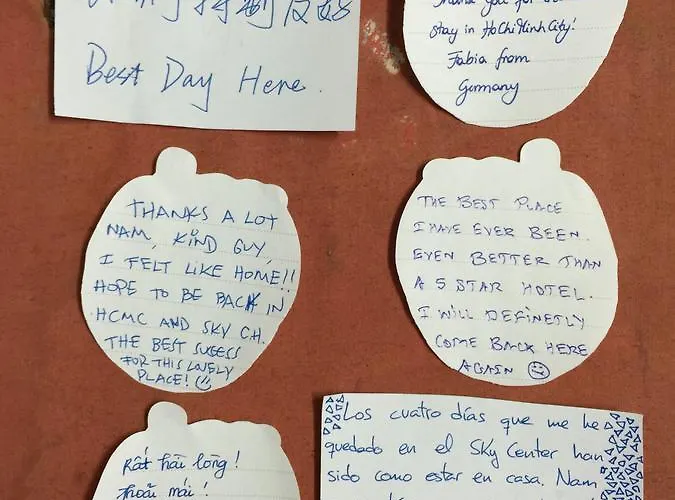 Best Day Here.
stay in Ho Chi Minh City!
Fabia from
Germany
THANKS A LOT
NAM, KIND GUY,
I FELT LIKE HOME!!
HOPE TO BE BACK IN
HCMC AND SKY C.H.
THE BEST SUCESS
FOR THIS LOVELY
PLACE!
THE BEST PLACE
I HAVE EVER BEEN.
EVEN BETTER THAN
A 5 STAR HOTEL.
I WILL DEFINETLY
COME BACK HERE
AGAIN
Rất hài lòng!
Thoải mái!
Los cuatro días que me he
quedado en el Sky Center han
sido como estar en casa. Nam